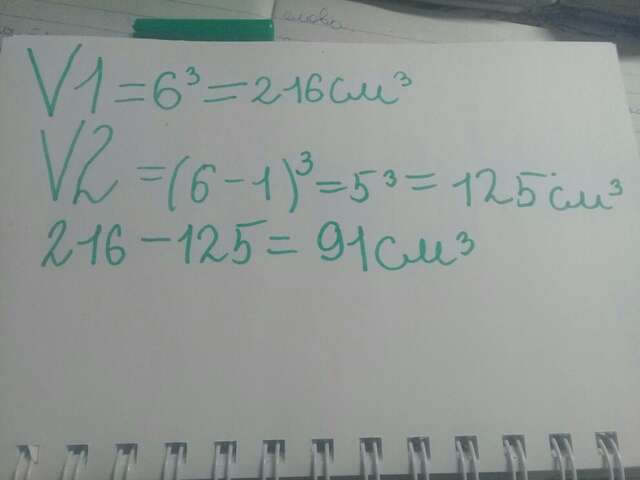 слова
V1=6³=216см³
V2=(6-1)³=5³=125см³
216-125=91см³